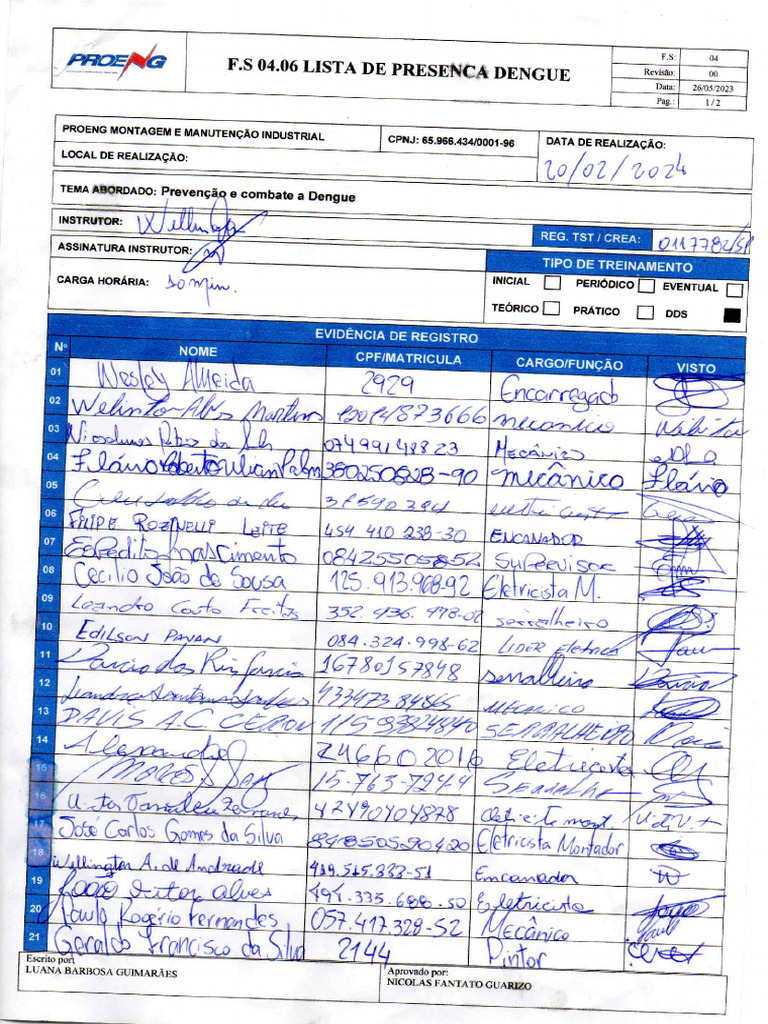 PROENG
F.S 04.06 LISTA DE PRESENCA DENGUE
F.S: 04
Revisão: 00
Data: 26/05/2023
Pag.: 1 / 2
PROENG MONTAGEM E MANUTENÇÃO INDUSTRIAL
CPNJ: 65.966.434/0001-96
DATA DE REALIZAÇÃO:
20/02/2024
LOCAL DE REALIZAÇÃO:
TEMA ABORDADO: Prevenção e combate a Dengue
INSTRUTOR:
REG. TST / CREA: 0117782/SP
ASSINATURA INSTRUTOR:
TIPO DE TREINAMENTO
CARGA HORÁRIA: 10 min.
INICIAL PERIÓDICO EVENTUAL
TEÓRICO PRÁTICO DDS
EVIDÊNCIA DE REGISTRO
Nº NOME CPF/MATRICULA CARGO/FUNÇÃO VISTO
01 Wesley Almeida 2929 Encarregado
02 Welinton Alves Martins mecanico
03 07499148823 Mecânico
04 Flávio 380250828-90 mecânico Flávio
05
06 FILIPE ROZINELLI LEITE 454 410 238-30 ENCANADOR
07 Expedito Nascimento 08425505852 Supervisor
08 Cecilio João de Sousa 125.913.968-92 Eletricista M.
09 Leandro Couto Freitas 352.936.978-02 serralheiro
10 EDILSON PAVAN 084.324.998-62 LIDER Eletrica
11 16780157848 serralheiro
12 Mecânico
13 DAVIS A.C. CERON 11593824840 SERRALHEIRO
14 Alexandre 24660 2016 Eletricista
15 15-763-724-4
16 42490404878
17 José Carlos Gomes da Silva 84850590420 Eletricista Montador
18 Wellington A. de Andrade 419.515.333-51 Encanador
19 Alves 494.335.688-50 Eletricista
20 Paulo Rogério Fernandes 057.417.328-52 Mecânico
21 Geraldo Francisco da Silva 2144 Pintor
Escrito por:
LUANA BARBOSA GUIMARÃES
Aprovado por:
NICOLAS FANTATO GUARIZO